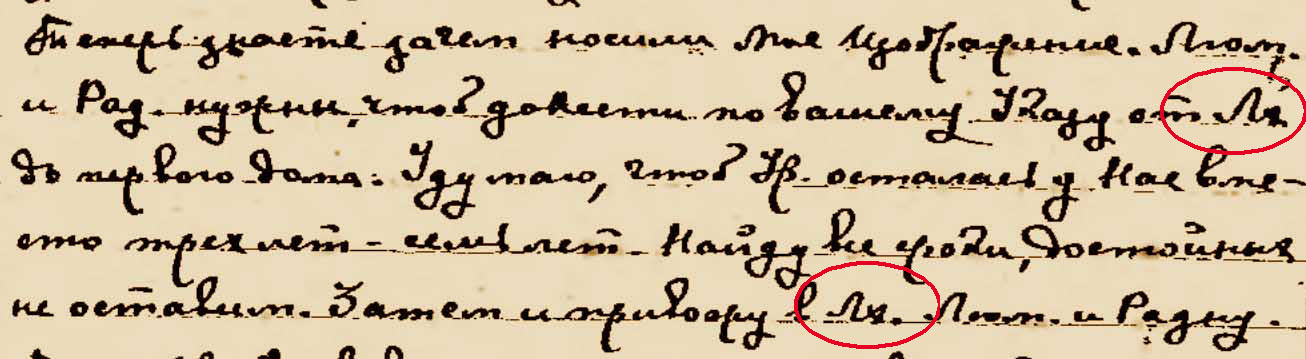 Теперь знаете зачем носили Мое Изображение. Люм.
и Рад. нужны, чтоб довести по Вашему Указу от Лх.
до первого дома. Удумаю, чтоб Ур. осталась у Нас вме-
сто трех лет – семь лет. Найду все сроки, достойных
не оставим. Затем и в Лх. Люм. и Радну.